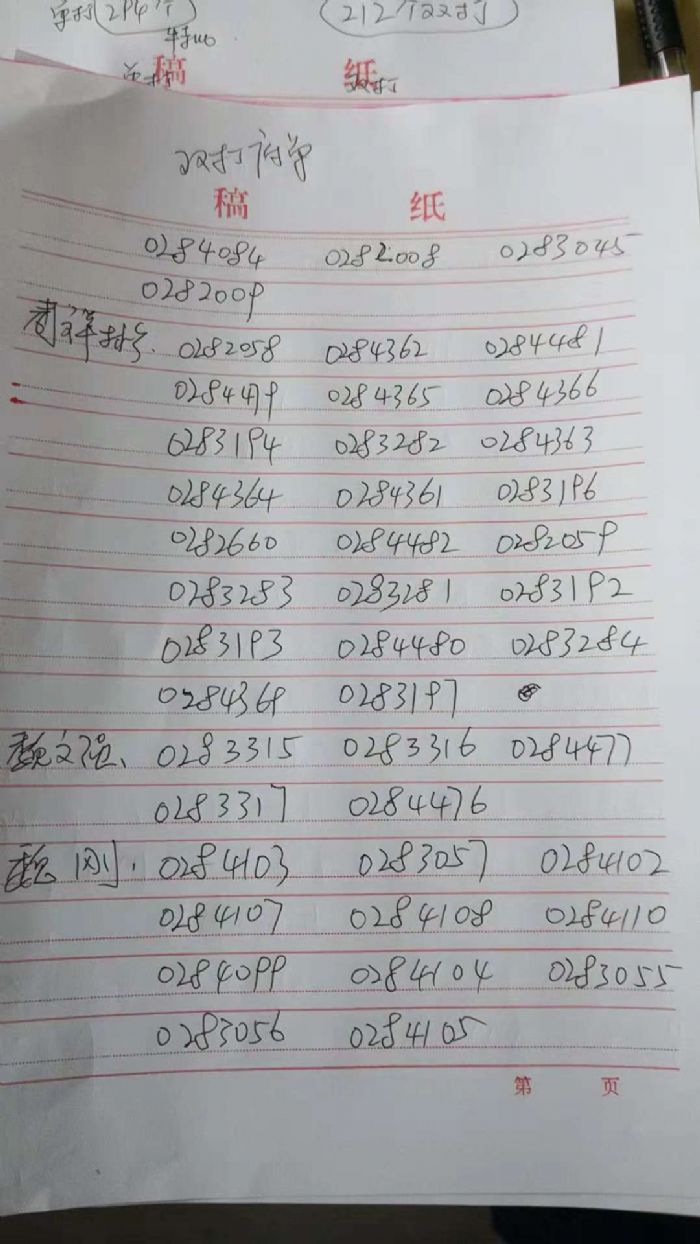 单打(294个) (212个双打)
稿 纸
单打 双打
双打沽单
稿 纸
0284084 0282008 0283045
0282009
0282058 0284362 0284481
0284479 0284365 0284366
0283194 0283282 0284363
0284364 0284361 0283196
0282660 0284482 0282059
0283283 0283281 0283192
0283193 0284480 0283284
0284369 0283197
魏文强、 0283315 0283316 0284477
0283317 0284476
魏刚、 0284103 0283057 0284102
0284107 0284108 0284110
0284099 0284104 0283055
0283056 0284105
第 页